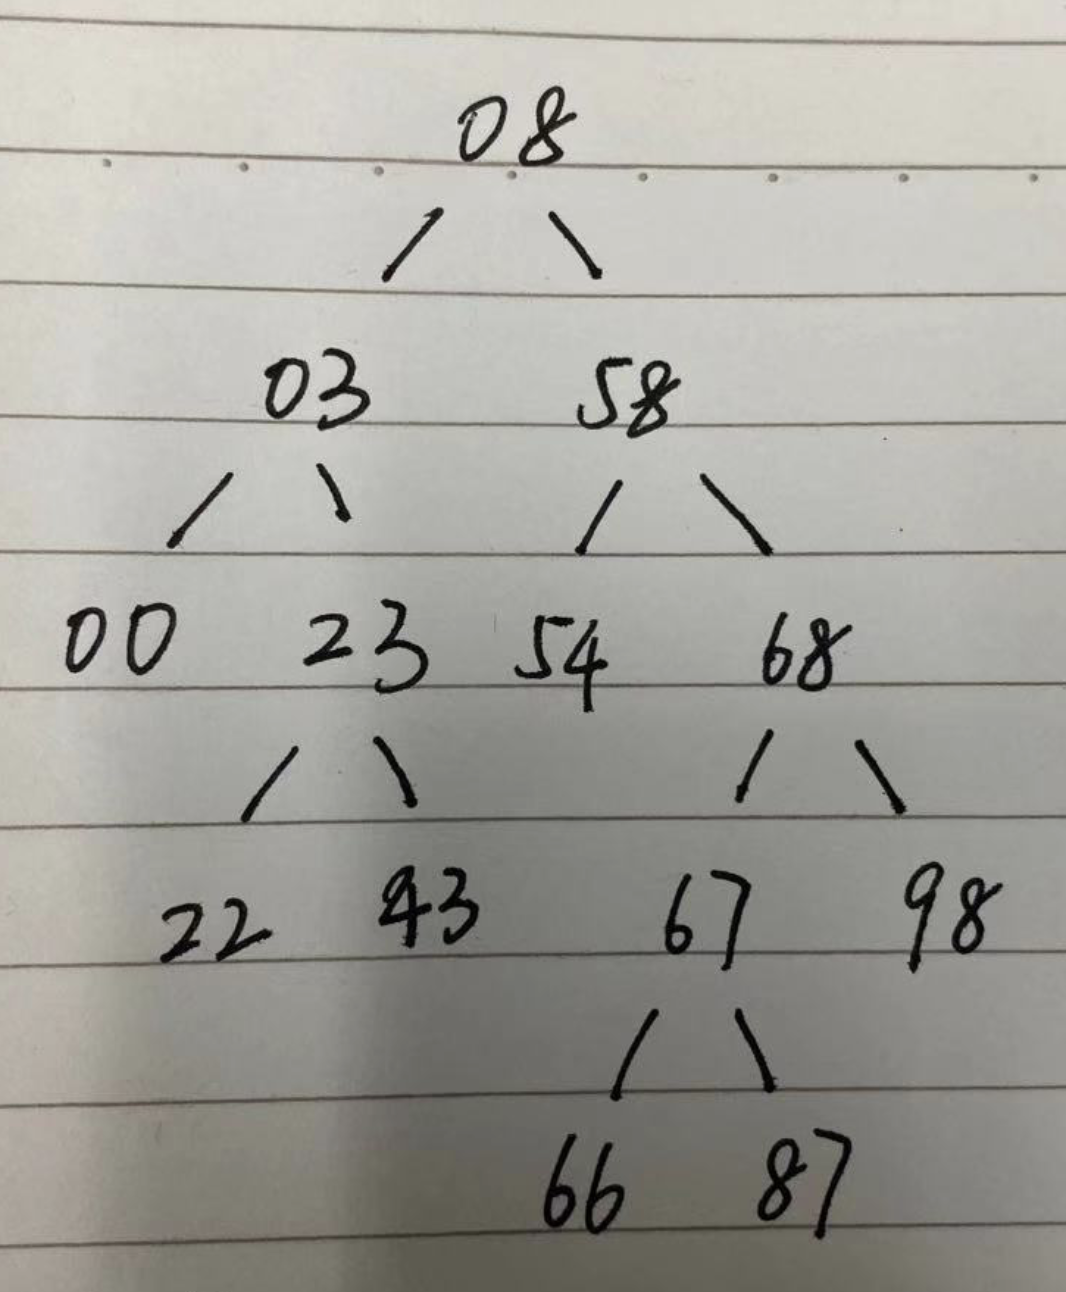 08
03 58
00 23 54 68
22 43 67 98
66 87